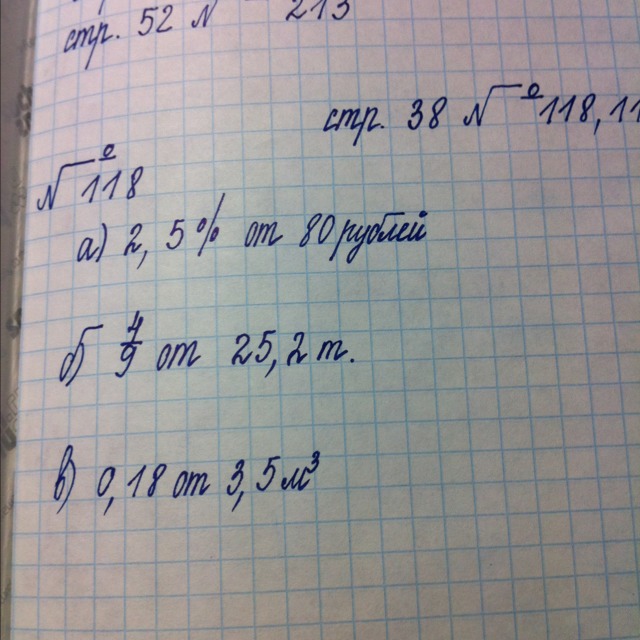 стр. 52 № 213
стр. 38 № 118, 11
№ 118
а) 2, 5% от 80 рублей
б) 4/9 от 25, 2 т.
в) 0, 18 от 3, 5 м³